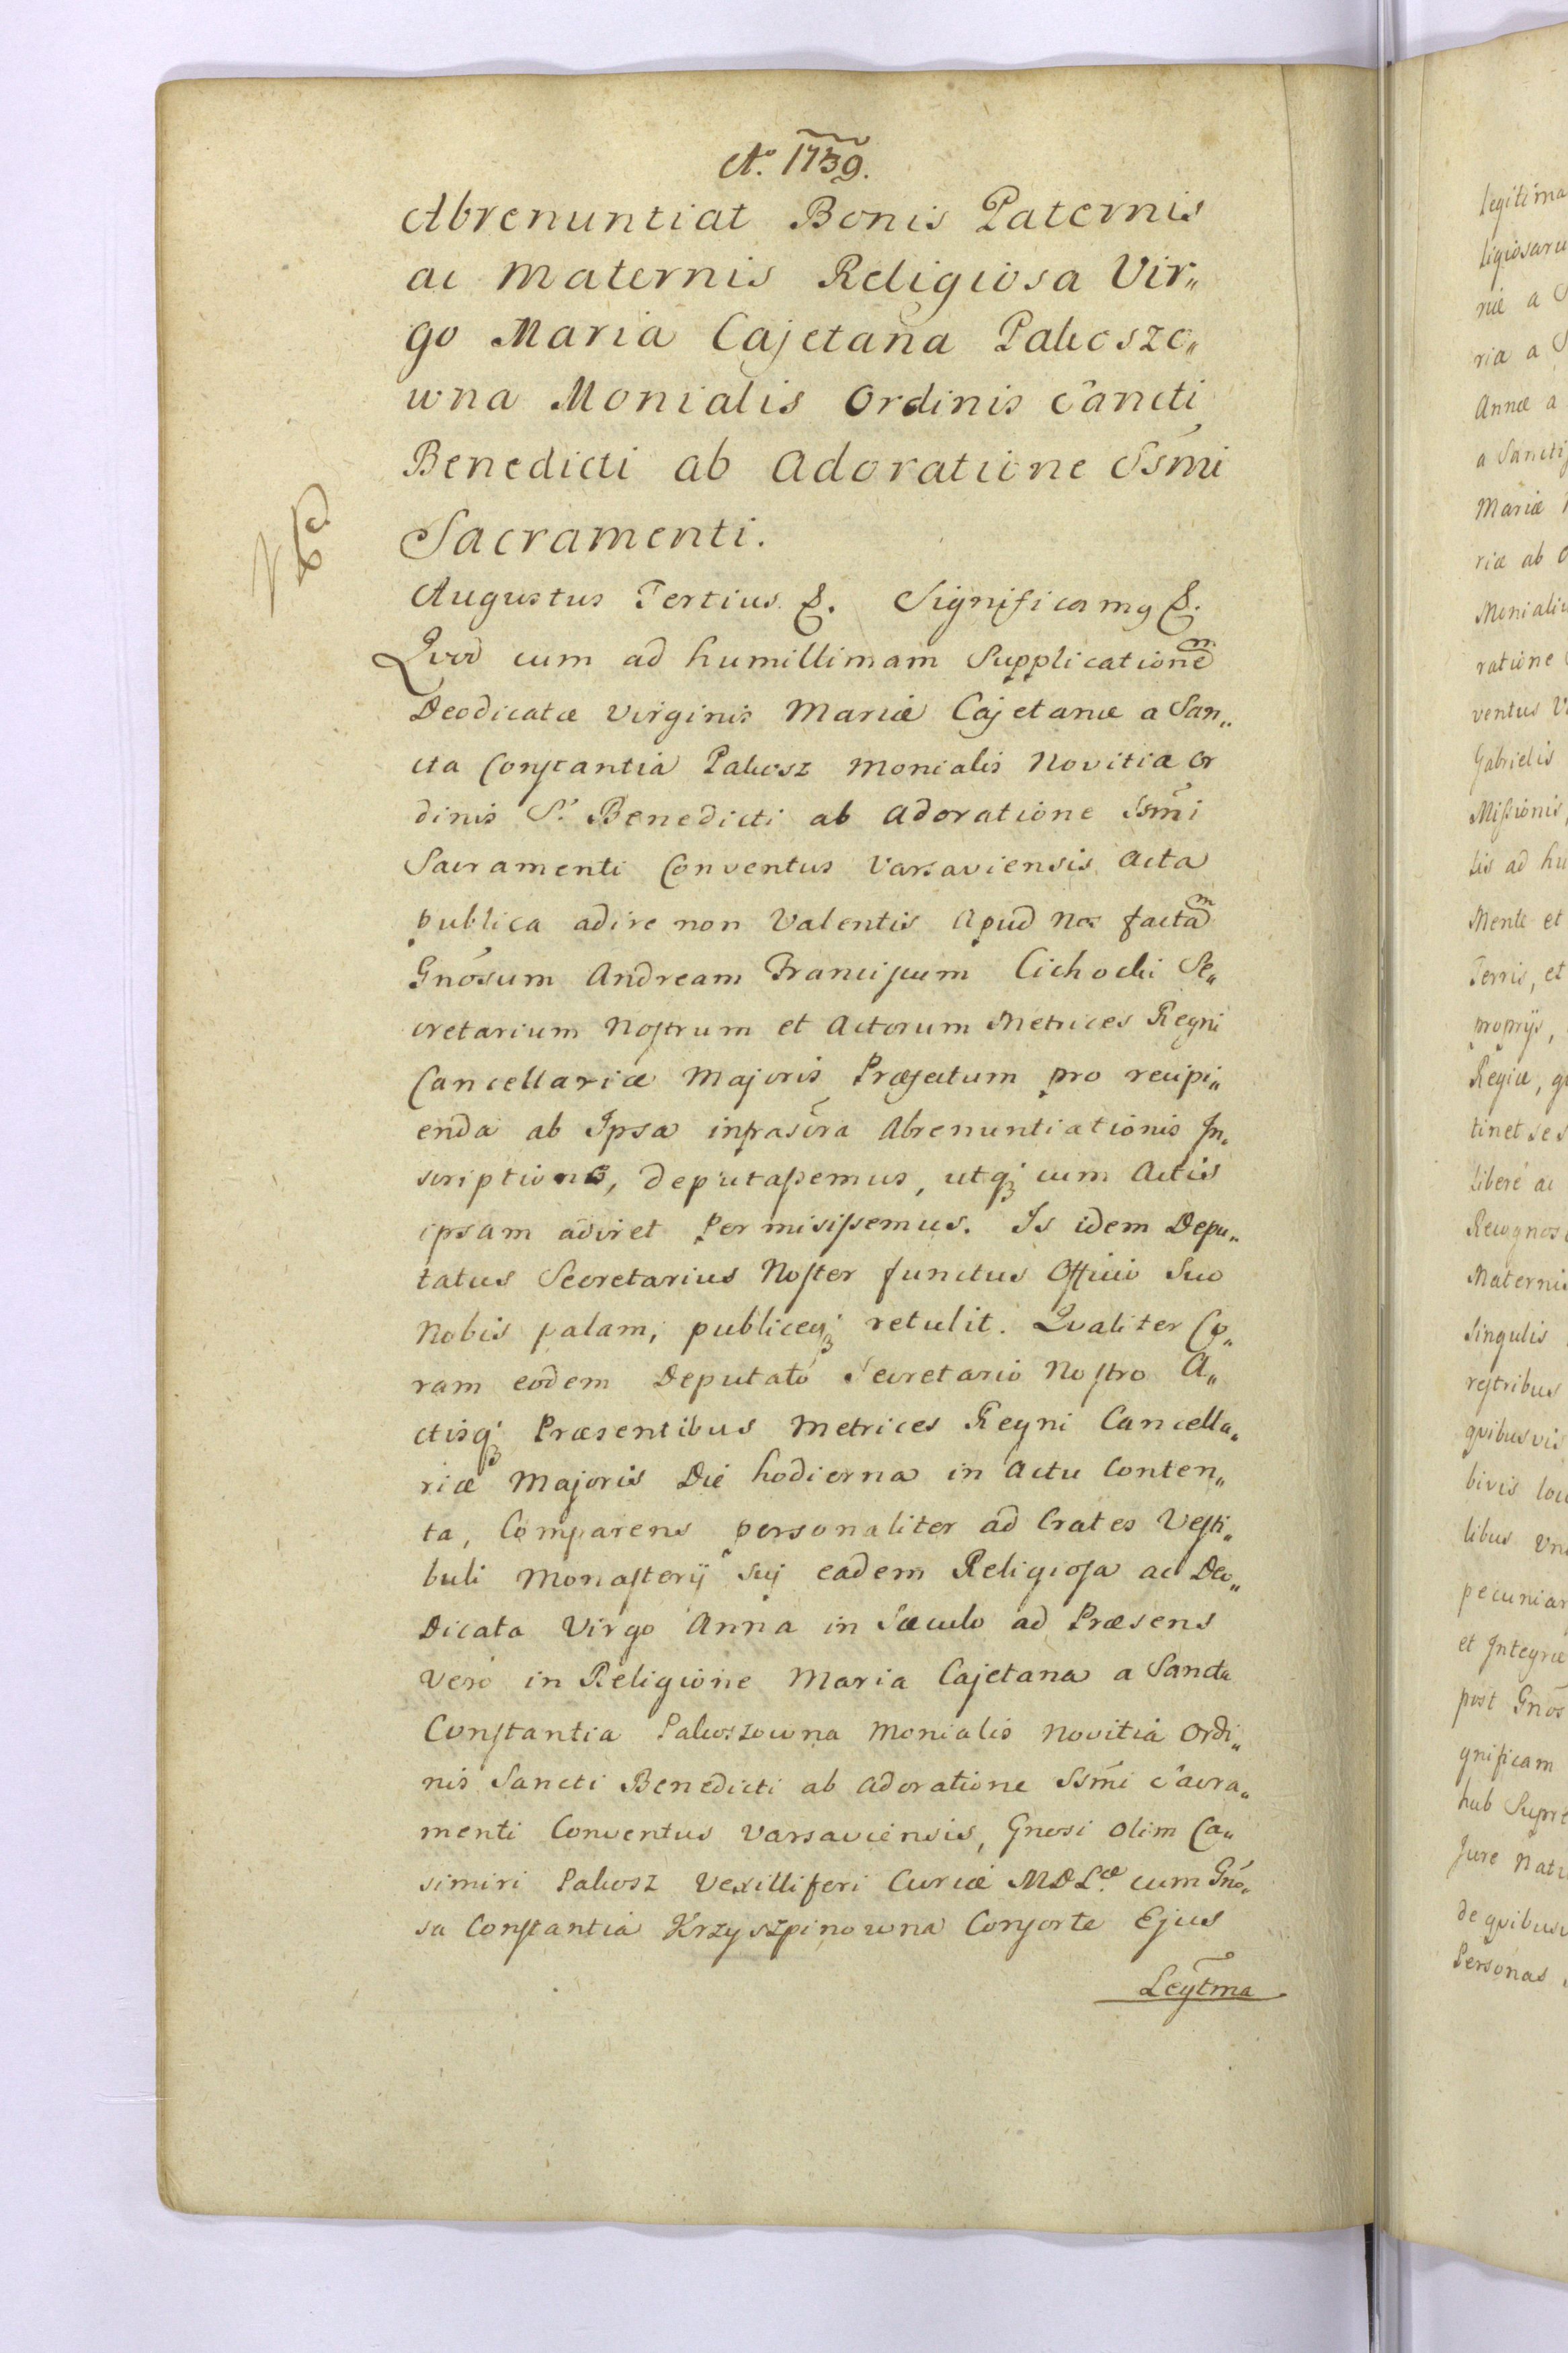 Ao. 1739.
Abrenuntiat Bonis Paternis
ac Maternis Religiosa Vir„
go Maria Cajetana Pakoszo„
wna Monialis Ordinis Sancti
Benedicti ab Adoratione Ssmi
Sacramenti.
Augustus Tertius &. Significamq &.
Qvod cum ad humillimam Supplicationem
Deodicatæ Virginis Mariæ Cajetanæ a San„
cta Constantia Pakosz Monialis Novitiæ Or
dinis S. Benedicti ab Adoratione Ssmi
Sacramenti Conventus Varsaviensis Acta
publica adire non Valentis Apud Nos factam
Gnosum Andream Franciscum Cichocki Se„
cretarium Nostrum et Actorum Metrices Regni
Cancellariæ Majoris Præfectum pro recipi„
enda ab Ipsa infrascra Abrenuntiationis In„
scriptione, deputassemus, utq3 cum Actis
ipsam adiret Permisissemus. Is idem Depu„
tatus Secretarius Noster functus Officio Suo
Nobis palam, publiceq3 retulit. Qvaliter Co„
ram eodem Deputato Secretario Nostro A„
ctisq3 Præsentibus Metrices Regni Cancella„
riæ Majoris Die hodierna in Actu Conten„
ta, Comparens personaliter ad Crates Vesti„
buli Monasterij Suj eadem Religiosa ac Deo„
Dicata Virgo Anna in Sæculo ad Præsens
Vero in Religione Maria Cajetana a Sancta
Constantia Pakoszowna Monialis Novitia Ordi„
nis Sancti Benedicti ab Adoratione Ssmi Sacra„
menti Conventus Varsaviensis, Gnosi Olim Ca„
simiri Pakosz Vexilliferi Curiæ MDLæ cum Gno„
sa Constantia Krzyszpinowna Consorte Ejus
Legtma
legitima
ligiosaru
niæ a
ria a
Annæ a
a Sancti
Mariæ
riæ ab
Monialiu
ratione
ventus
Gabrielis
Missionis
lis ad hu
Mente et
Terris, et
proprijs,
Regiæ,
tinet se
libere ac
Recognos
Maternis
Singulis
restribus
qvibusvis
bivis loci
libus
pecuniar
et Integræ
post Gnos
gnificam
hub Supre
Jure Natu
de qvibusv
Personas